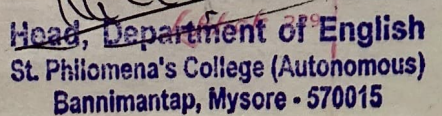 Head, Department of English
St. Philomena's College (Autonomous)
Bannimantap, Mysore - 570015